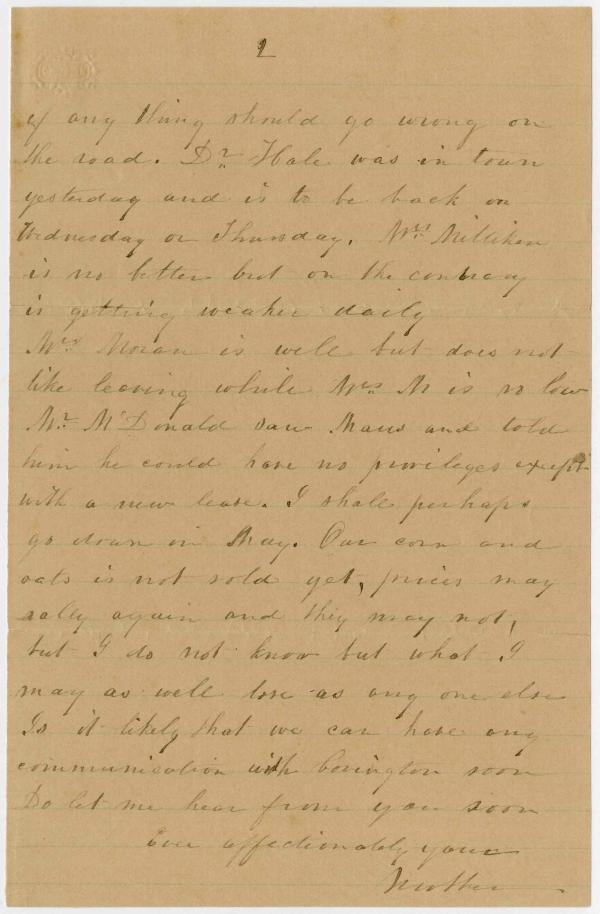 2
if any thing should go wrong on
the road. Dr. Hale was in town
yesterday and is to be back on
Wednesday or Thursday. Mrs. Milliken
is no better but on the contrary
is getting weaker daily
Mrs. Moran is well but does not
like leaving while Mrs. M is so low
Mr. McDonald saw and told
him he could have no privileges except
with a new lease. I shall perhaps
go down in May. Our corn and
oats is not sold yet, prices may
rally again and they may not,
but I do not know but what I
may as well lose as any one else
Is it likely that we can have any
communication with Covington soon
Do let me hear from you soon
Ever affectionately your
Mother